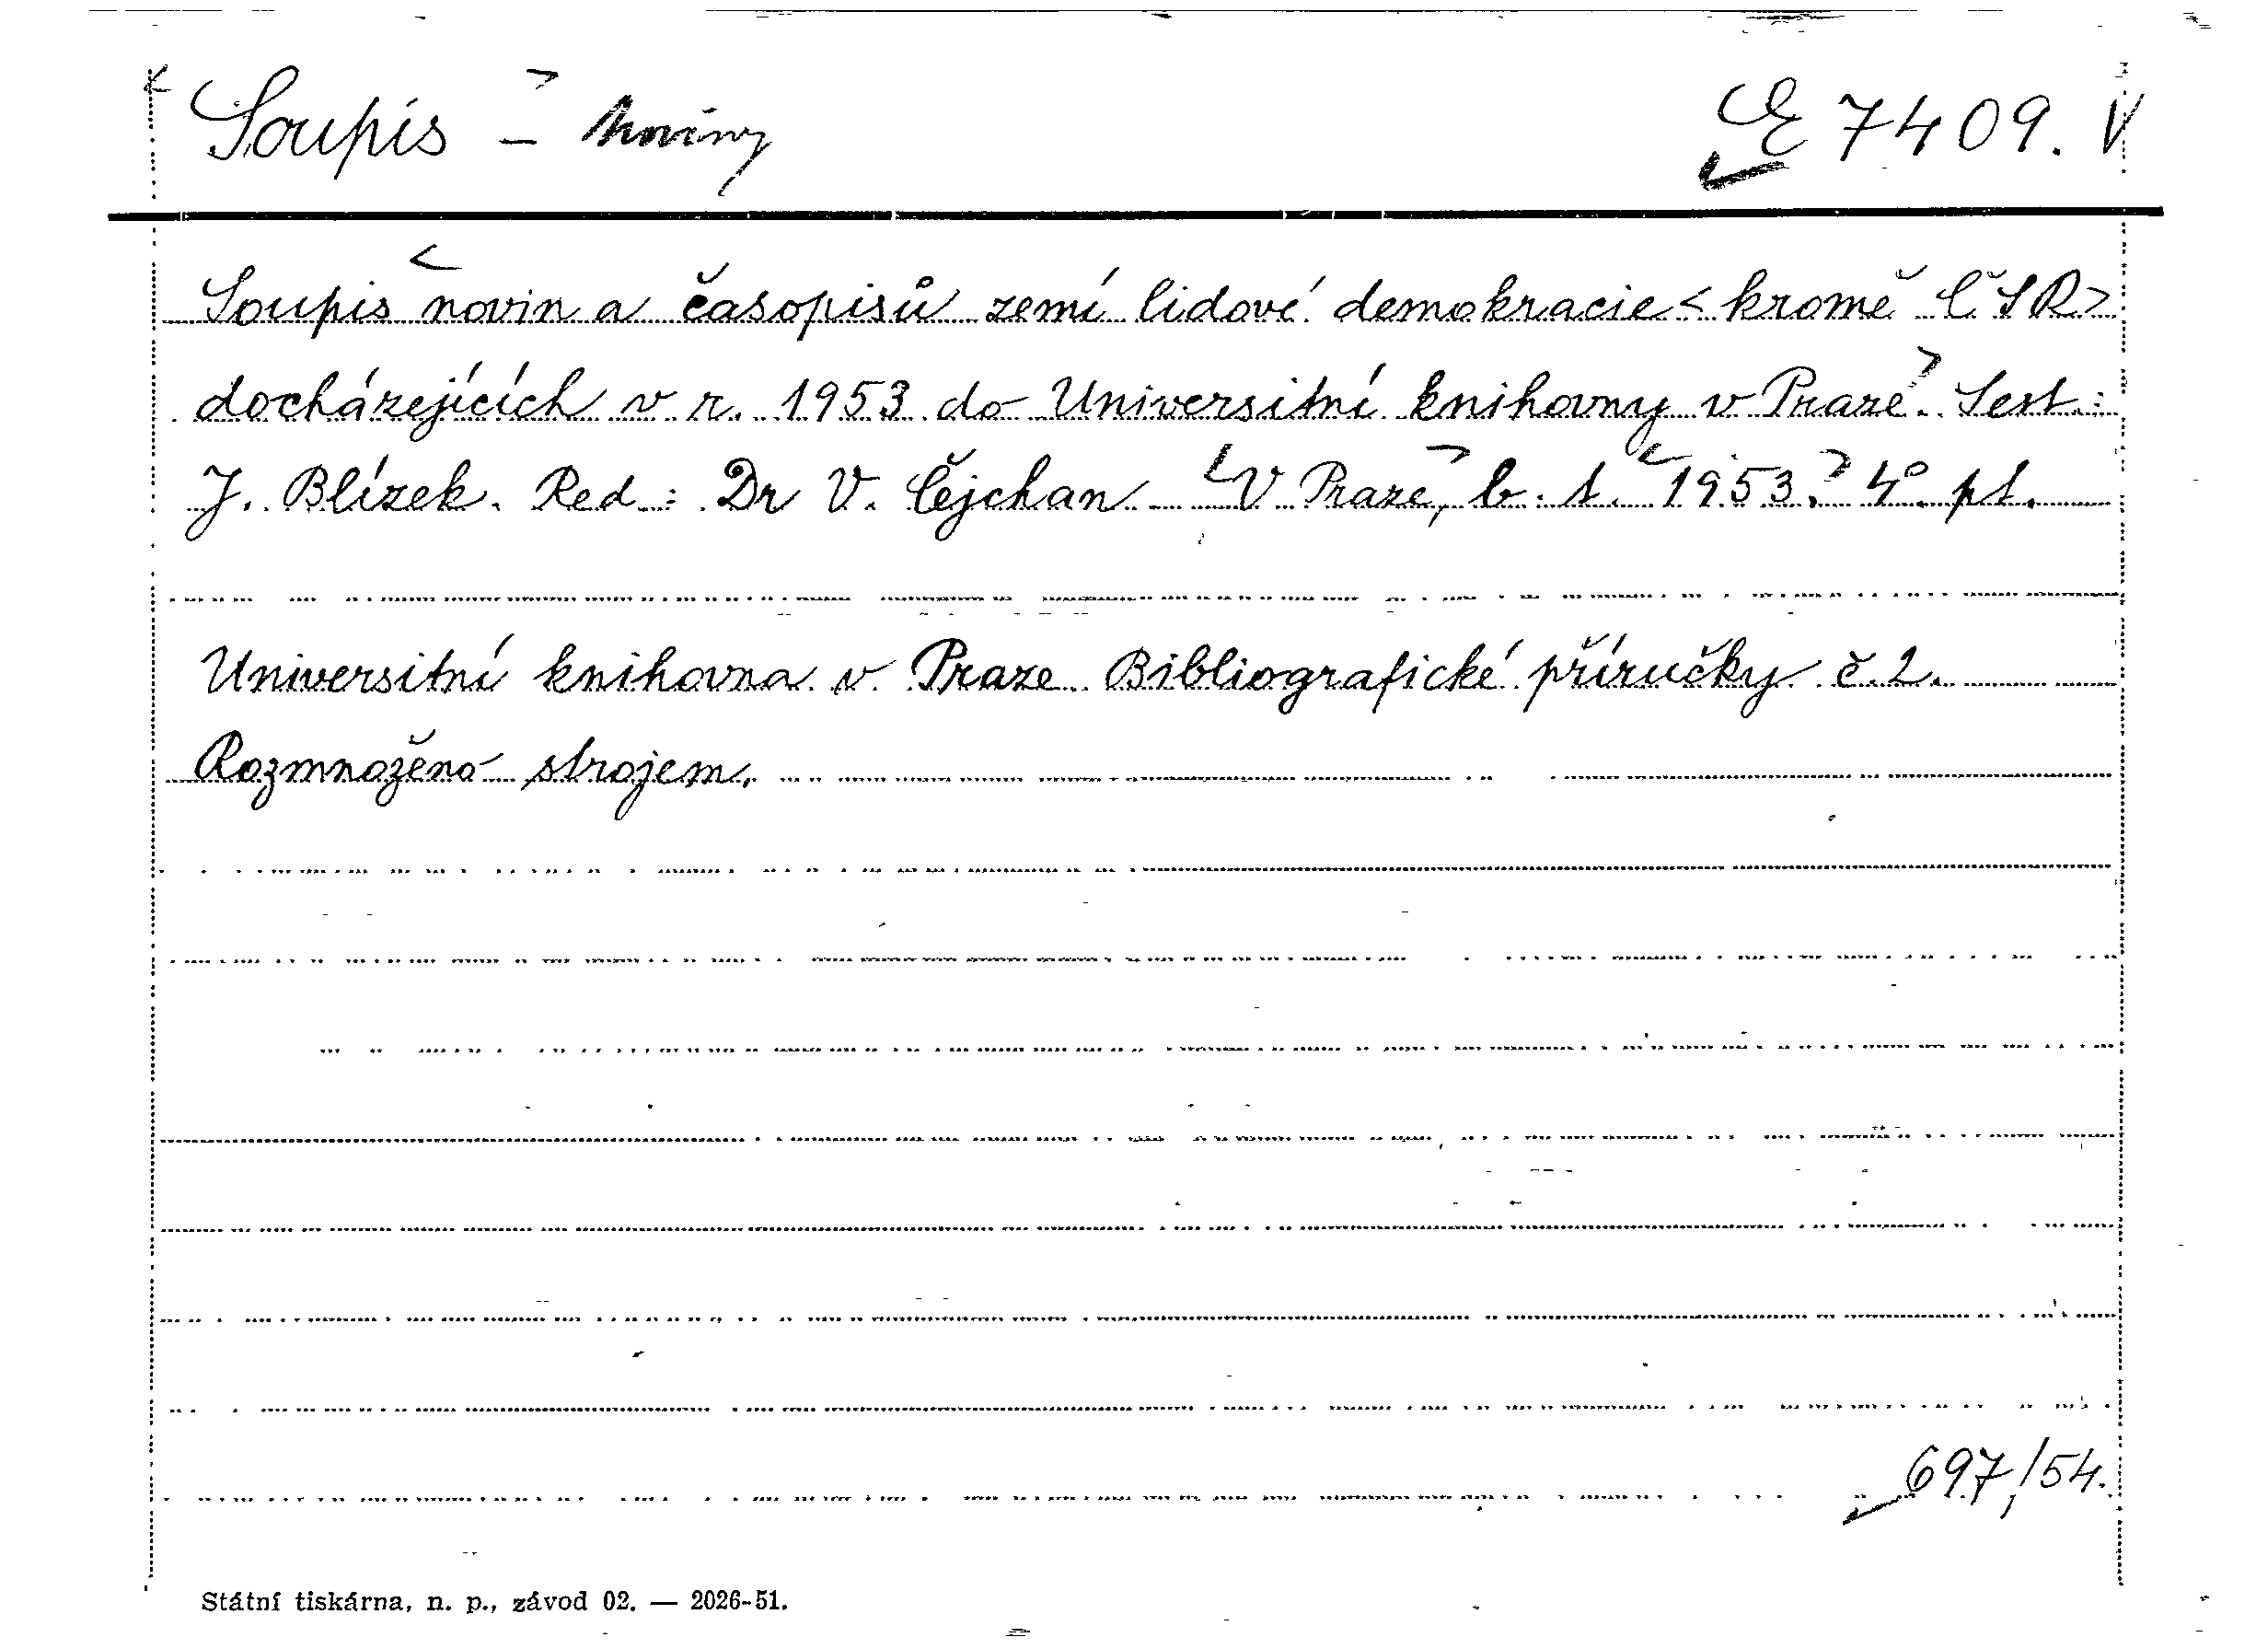 Soupis – noviny E 7409. V
Soupis novin a časopisů zemí lidové demokracie < kromě ČSR >
docházejících v r. 1953 do Universitní knihovny v Praze. Sest.:
J. Blízek. Red.: Dr V. Čejchan. V Praze, b. t. 1953. 4° pt.
Universitní knihovna v Praze. Bibliografické příručky č. 2.
Rozmnoženo strojem.
697/54.
Státní tiskárna, n. p., závod 02. — 2026-51.